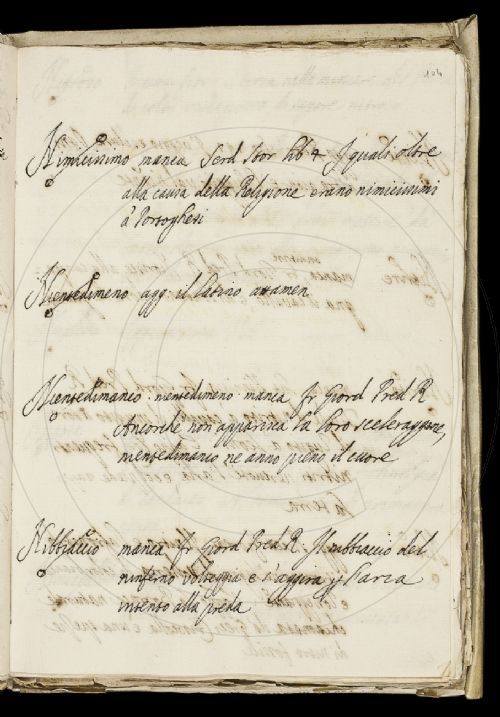 104
Nimicissimo manca Serd Stor lib 4 I quali oltre
alla causa della Religione erano nimicissimi
à Portoghesi
Nientedimeno agg: il latino attamen
Nientedimanco . nientedimeno . manca Fr Giord Pred R
Ancorche non apparisca la loro sceleraggine,
nientedimanco ne anno pieno il cuore
Nibbiaccio manca Fr Giord Pred R. Il nibbiaccio del
ninferno volteggia e s'aggira p l'aria
intento alla preda